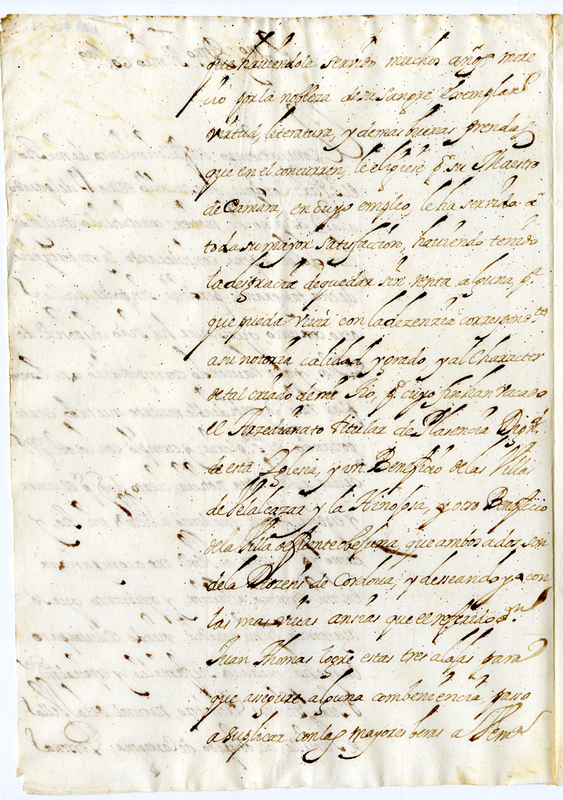 que haviendole servido muchos años mere
cio por la nobleza de su sangre, exemplar
virtud, leteratura, y demas buenas prendas
que en el concurren, le eligiese pr. su Maestro
de Camara, en cuyo empleo, le ha servido a
toda su mayor satisfacion, haviendo tenido
la desgracia de quedar sin renta alguna, pa.
que pueda vivir con la dezenzia correspondte.
a su notoria calidad y grado y al Character
de tal criado de mi tio, pr. cuyo fin han vacado
el Arzedianato titular de Plasencia
de esta Iglesia, y un Beneficio de las Villas
de Belalcazar y la Hinojosa, y otro Beneficio
de la Villa de Fuente obejuna que ambos a dos son
de la Diozesis de Cordova; y deseando yo con
las mas vivas ansias que el referido Dn.
Juan Thomas logre estas tres alajas para
que asegure alguna combeniencia, paso
a suplicar con las mayores beras a